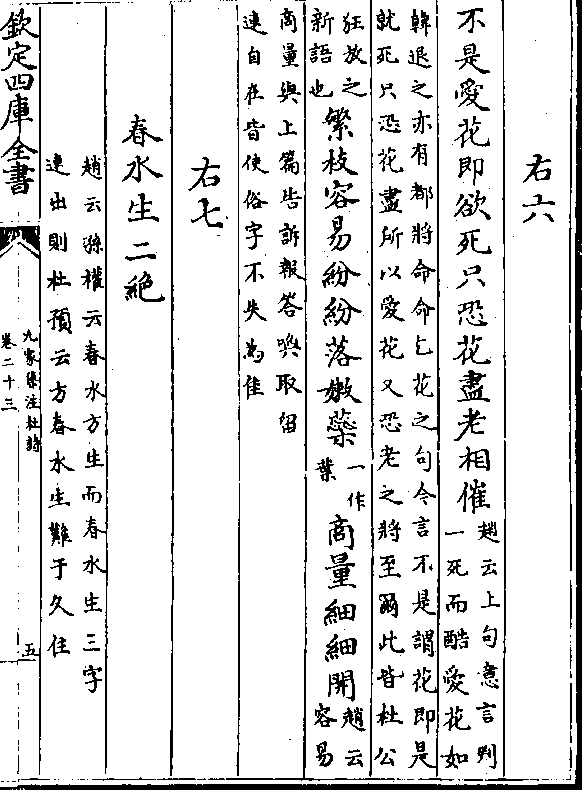 右六
不是愛花即欲死只恐花盡老相催
趙云上句意言判
一死而酷愛花如
韓退之亦有都將命命乞花之句今言不是謂花即是
就死只恐花盡所以愛花又恐老之將至爾此皆杜公
狂放之
新語也
繁枝容易紛紛落嫩蘂
一作
葉
商量細細開
趙云
容易
商量與上篇告訴報答喚取留
連自在皆使俗字不失為佳
右七
春水生二絶
趙云孫權云春水方生而春水生三字
連出則杜預云方春水生難于久住
欽定四庫全書
九家集注杜詩
卷二十三
五